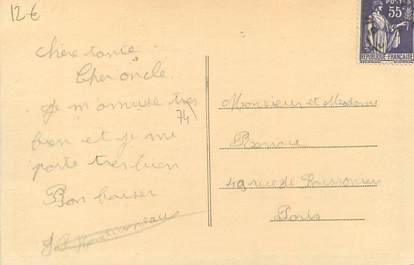 12€
POSTES
55c
REPUBLIQUE FRANCAISE
chère tante
Cher oncle
Je m'amuse tres
74
bien et je me
porte tres bien
Bon baiser
Monsieur et Madame
rue de
Paris